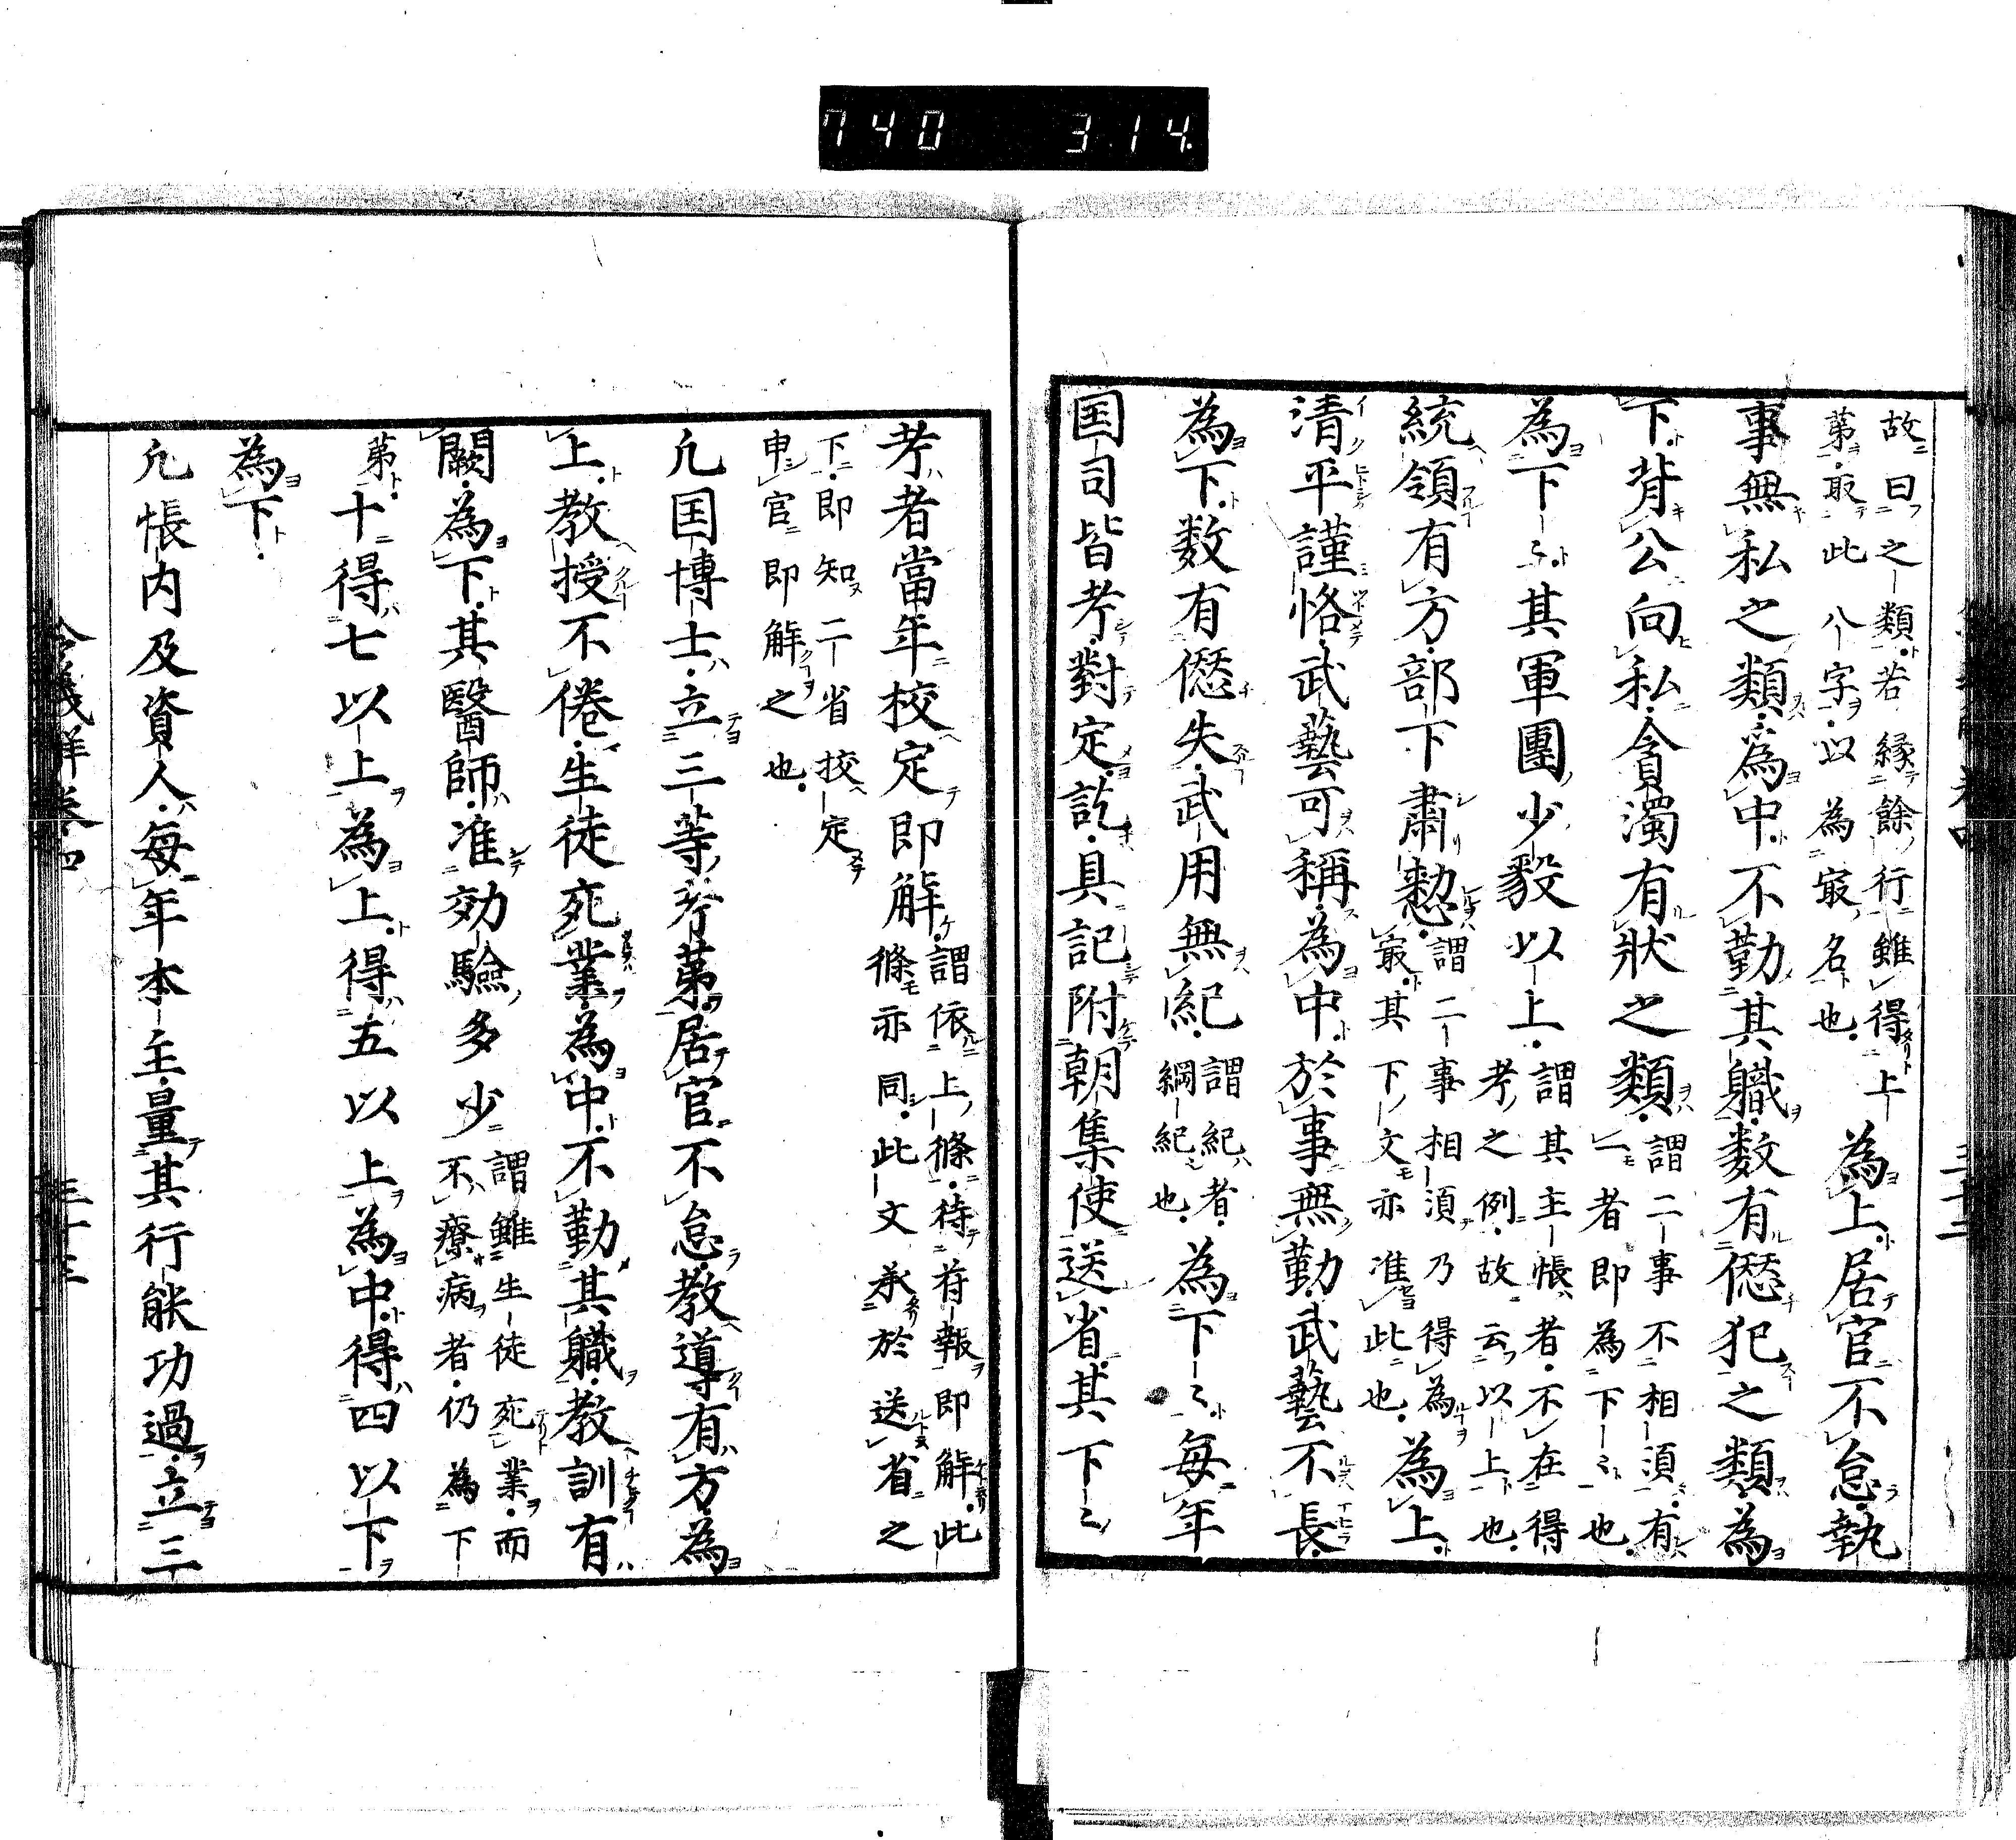 740 314.
故曰之類若縁餘行雖得上
第取此八字以為㝡名也
為上居官不怠執
事無私之類為中不勤其職数有愆犯之類為
下背公向私貪濁有状之類
謂二事不相須有
一者即為下〻也
為下〻其軍團少毅以上
謂其主帳者不在得
考之例故云以上也
統領有方部下肅愗
謂二事相須乃得為
㝡其下文亦准此也
為上
清平謹恪武藝可稱為中於事無勤武藝不長
為下数有愆失武用無紀
謂紀者
綱紀也
為下〻毎年
国司皆考對定訖具記附朝集使送省其下〻
考者當年校定即解
謂依上條待苻報即解此
條亦同此文承於送省之
下即知二省挍定
申官即解之也
凢国博士立三等考第居官不怠教導有方為
上教授不倦生徒死業為中不勤其職教訓有
闕為下其醫師准効驗多少
謂雖生徒死業而
不療病者仍為下
第
十得七以上為上得五以上為中得四以下
為下
凢帳内及資人毎年本主量其行能功過立三
令義解卷四
三十三